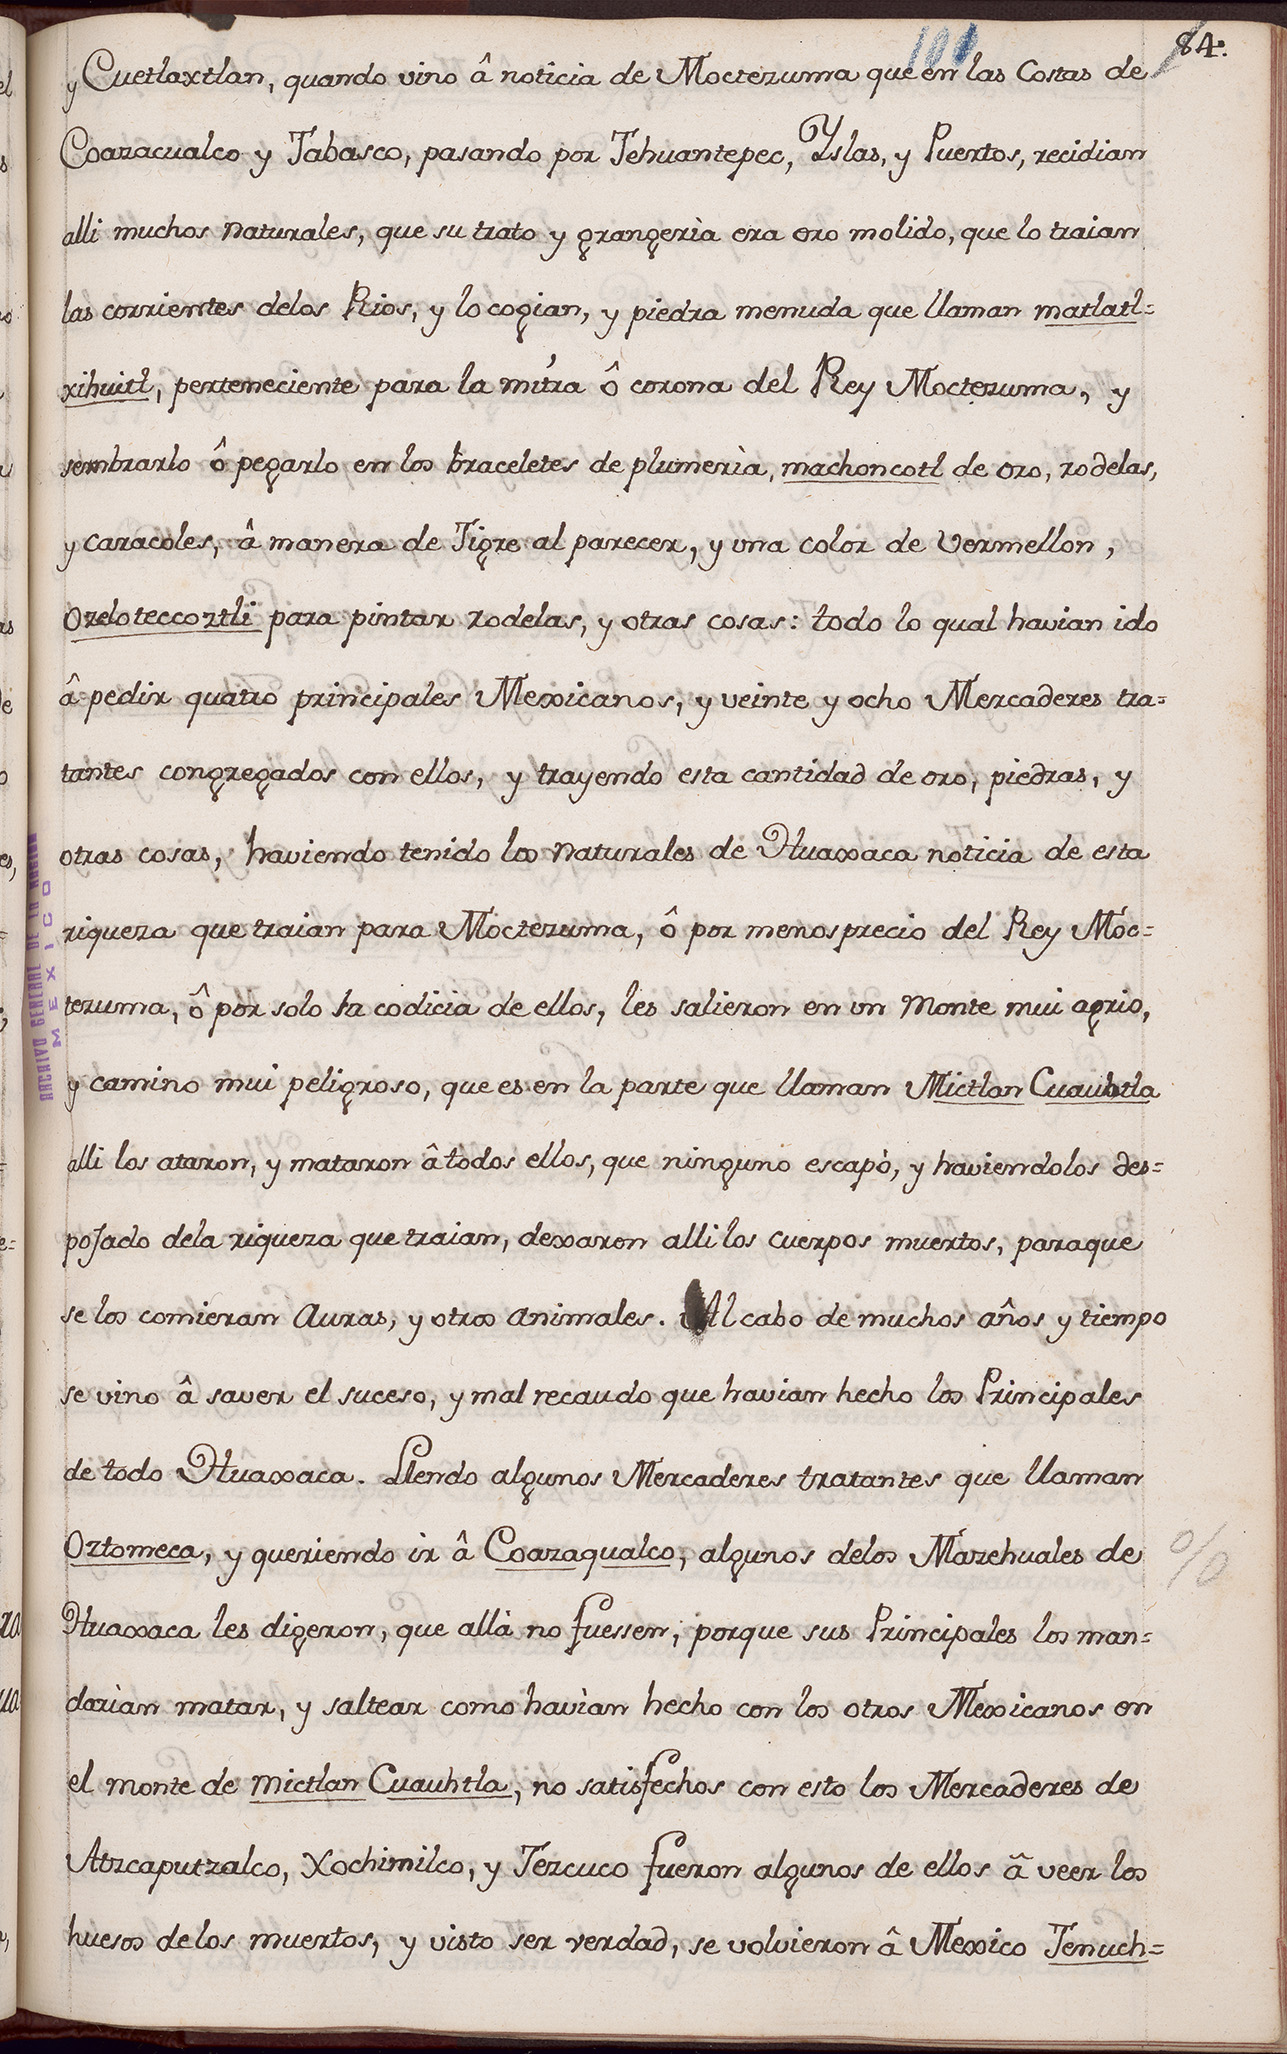 84.
101
y Cuetlaxtlan, quando vino â noticia de Moctezuma que en las Costas de
Coazacualco y Tabasco, pasando por Tehuantepec, Yslas, y Puertos, recidian
alli muchos naturales, que su trato y grangerìa era oro molido, que lo traian
las corrientes delos Rios, y lo cogian, y piedra menuda que llaman matlatl=
xihuitl, perteneciente para la mitra ô corona del Rey Moctezuma, y
sembrarlo ô pegarlo en los braceletes de plumerìa, machoncotl de oro, rodelas,
y caracoles, â manera de Tigre al parecer, y una color de Vermellon,
Ozeloteccoztli para pintar rodelas, y otras cosas: todo lo qual havian ido
â pedir quatro principales Mexicanos, y veinte y ocho Mercaderes tra=
tantes congregados con ellos, y trayendo esta cantidad de oro, piedras, y
otras cosas, haviendo tenido los naturales de Huaxaca noticia de esta
riqueza que traian para Moctezuma, ô por menosprecio del Rey Moc=
tezuma, ô por solo la codicia de ellos, les salieron en un Monte mui agrio,
y camino mui peligroso, que es en la parte que llaman Mictlan Cuauhtla
alli los ataron, y mataron â todos ellos, que ninguno escapò, y haviendolos des=
pojado dela riqueza que traian, dexaron alli los cuerpos muertos, paraque
se los comieran Auras, y otros animales. Al cabo de muchos años y tiempo
se vino â saver el suceso, y mal recaudo que havian hecho los Principales
de todo Huaxaca. Llendo algunos Mercaderes tratantes que llaman
Oztomeca, y queriendo ir â Coazaqualco, algunos delos Mazehuales de
Huaxaca les digeron, que allà no fuessen, porque sus Principales los man=
darìan matar, y saltear como havìan hecho con los otros Mexicanos en
el monte de Mictlan Cuauhtla, no satisfechos con esto los Mercaderes de
Atzcaputzalco, Xochimilco, y Tezcuco fueron algunos de ellos â veer los
huesos delos muertos, y visto ser verdad, se volvieron â Mexico Tenuch=
ARCHIVO GENERAL DE LA NACION
MEXICO
%